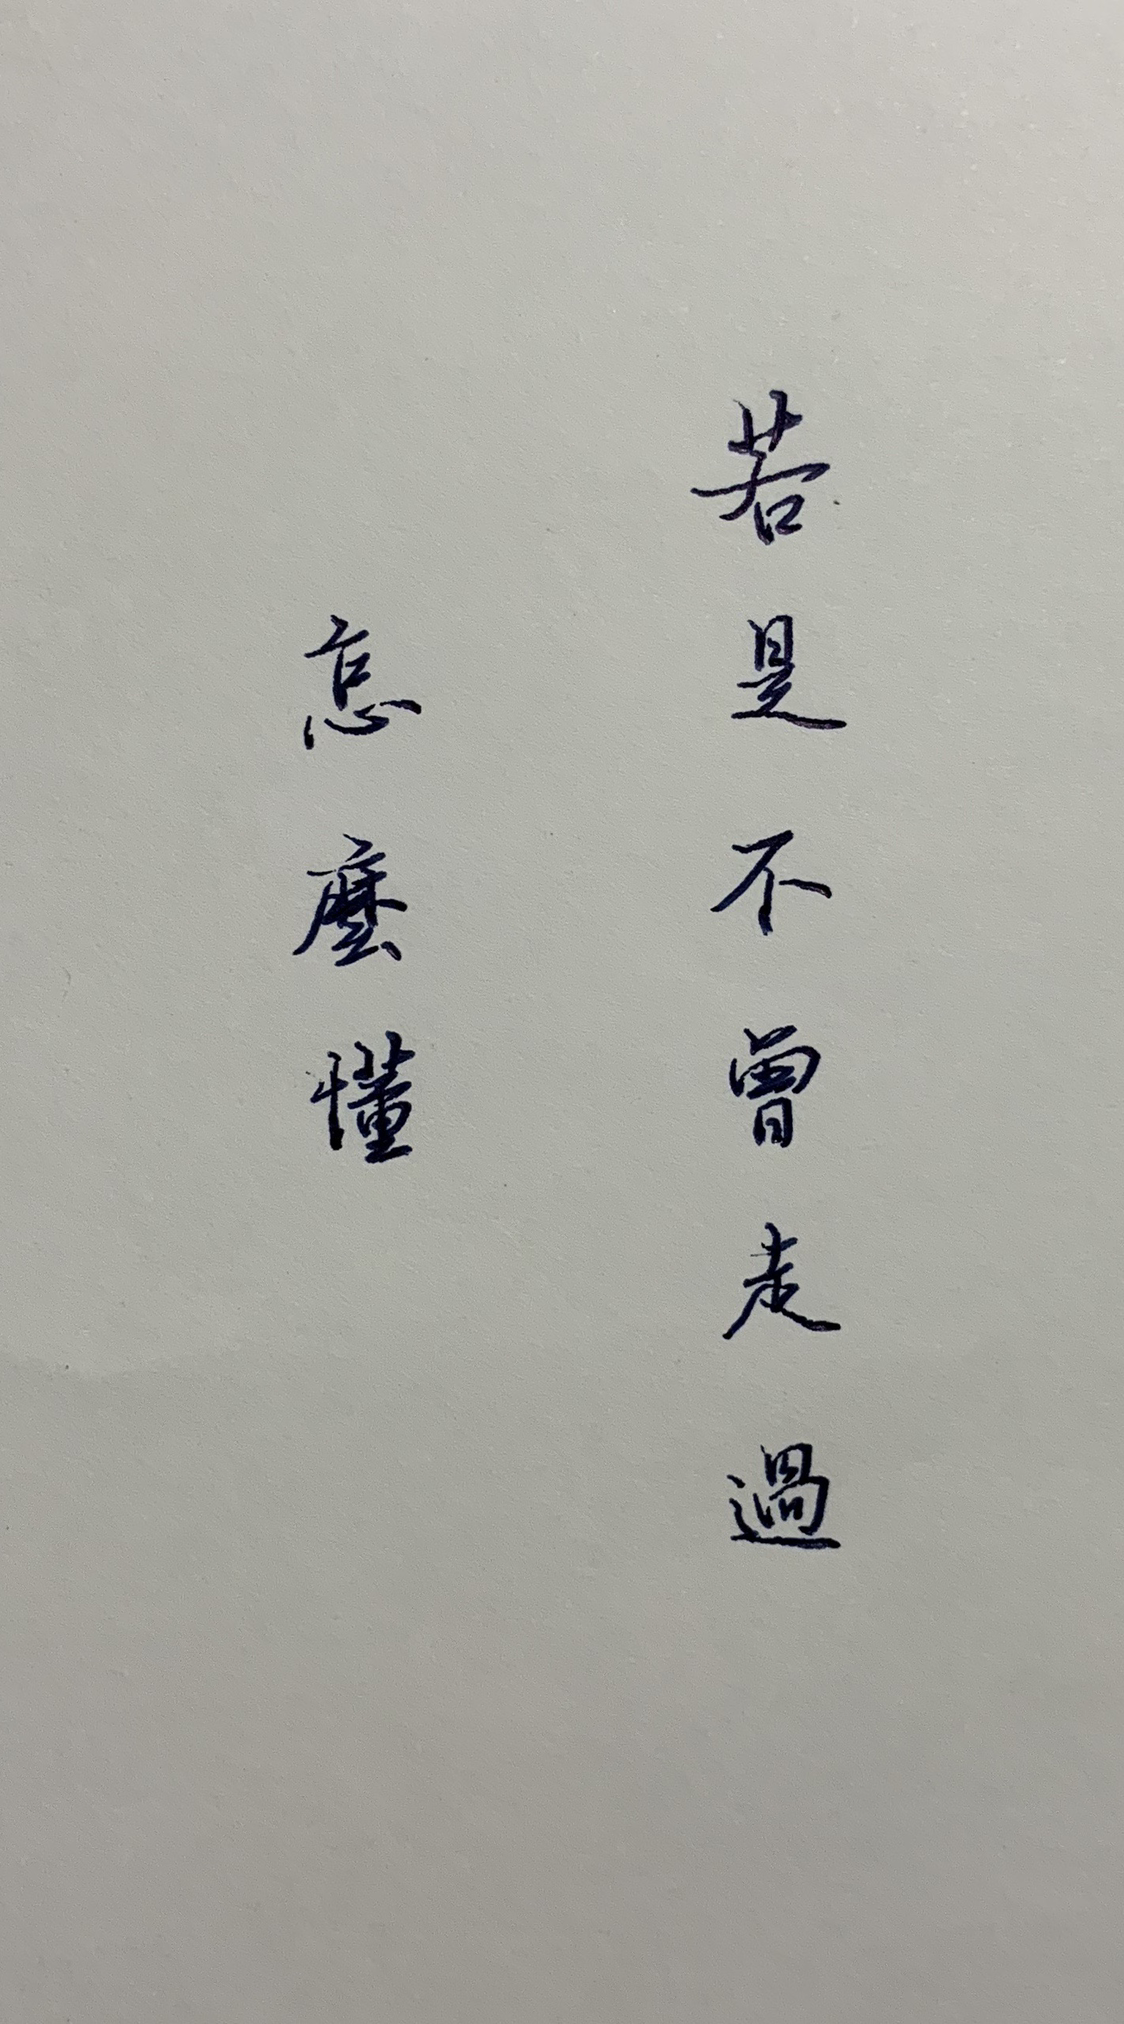 若是不曾走過
怎麼懂